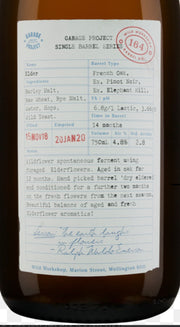 GARAGE PROJECT
SINGLE BARREL SERIES
GARAGE PROJECT
WILD WORKSHOP
164
Name
Barrel Type
Elder
French Oak,
Ex. Pinot Noir,
Ingredients
Ex. Elephant Hill.
Barley Malt,
TA / pH
Raw Wheat, Rye Malt,
6.8g/l lactic, 3.
Water, Hops,
Time in Barrel
Wild Yeast.
14 months
Volume Alc % Std.
15NOV18
20JAN20
750ml 4.8% 2.8
Wildflower spontaneous ferment using
foraged Elderflowers. Aged in oak for
months. Hand picked barrel 'dry eldered'
and conditioned for a further two months
on the fresh flowers from the next season.
Beautiful balance of aged and fresh
Elderflower aromatics!
the earth laughs
in flowers
Ralph Waldo Emerson
Wild Workshop, Marion Street, Wellington 6011